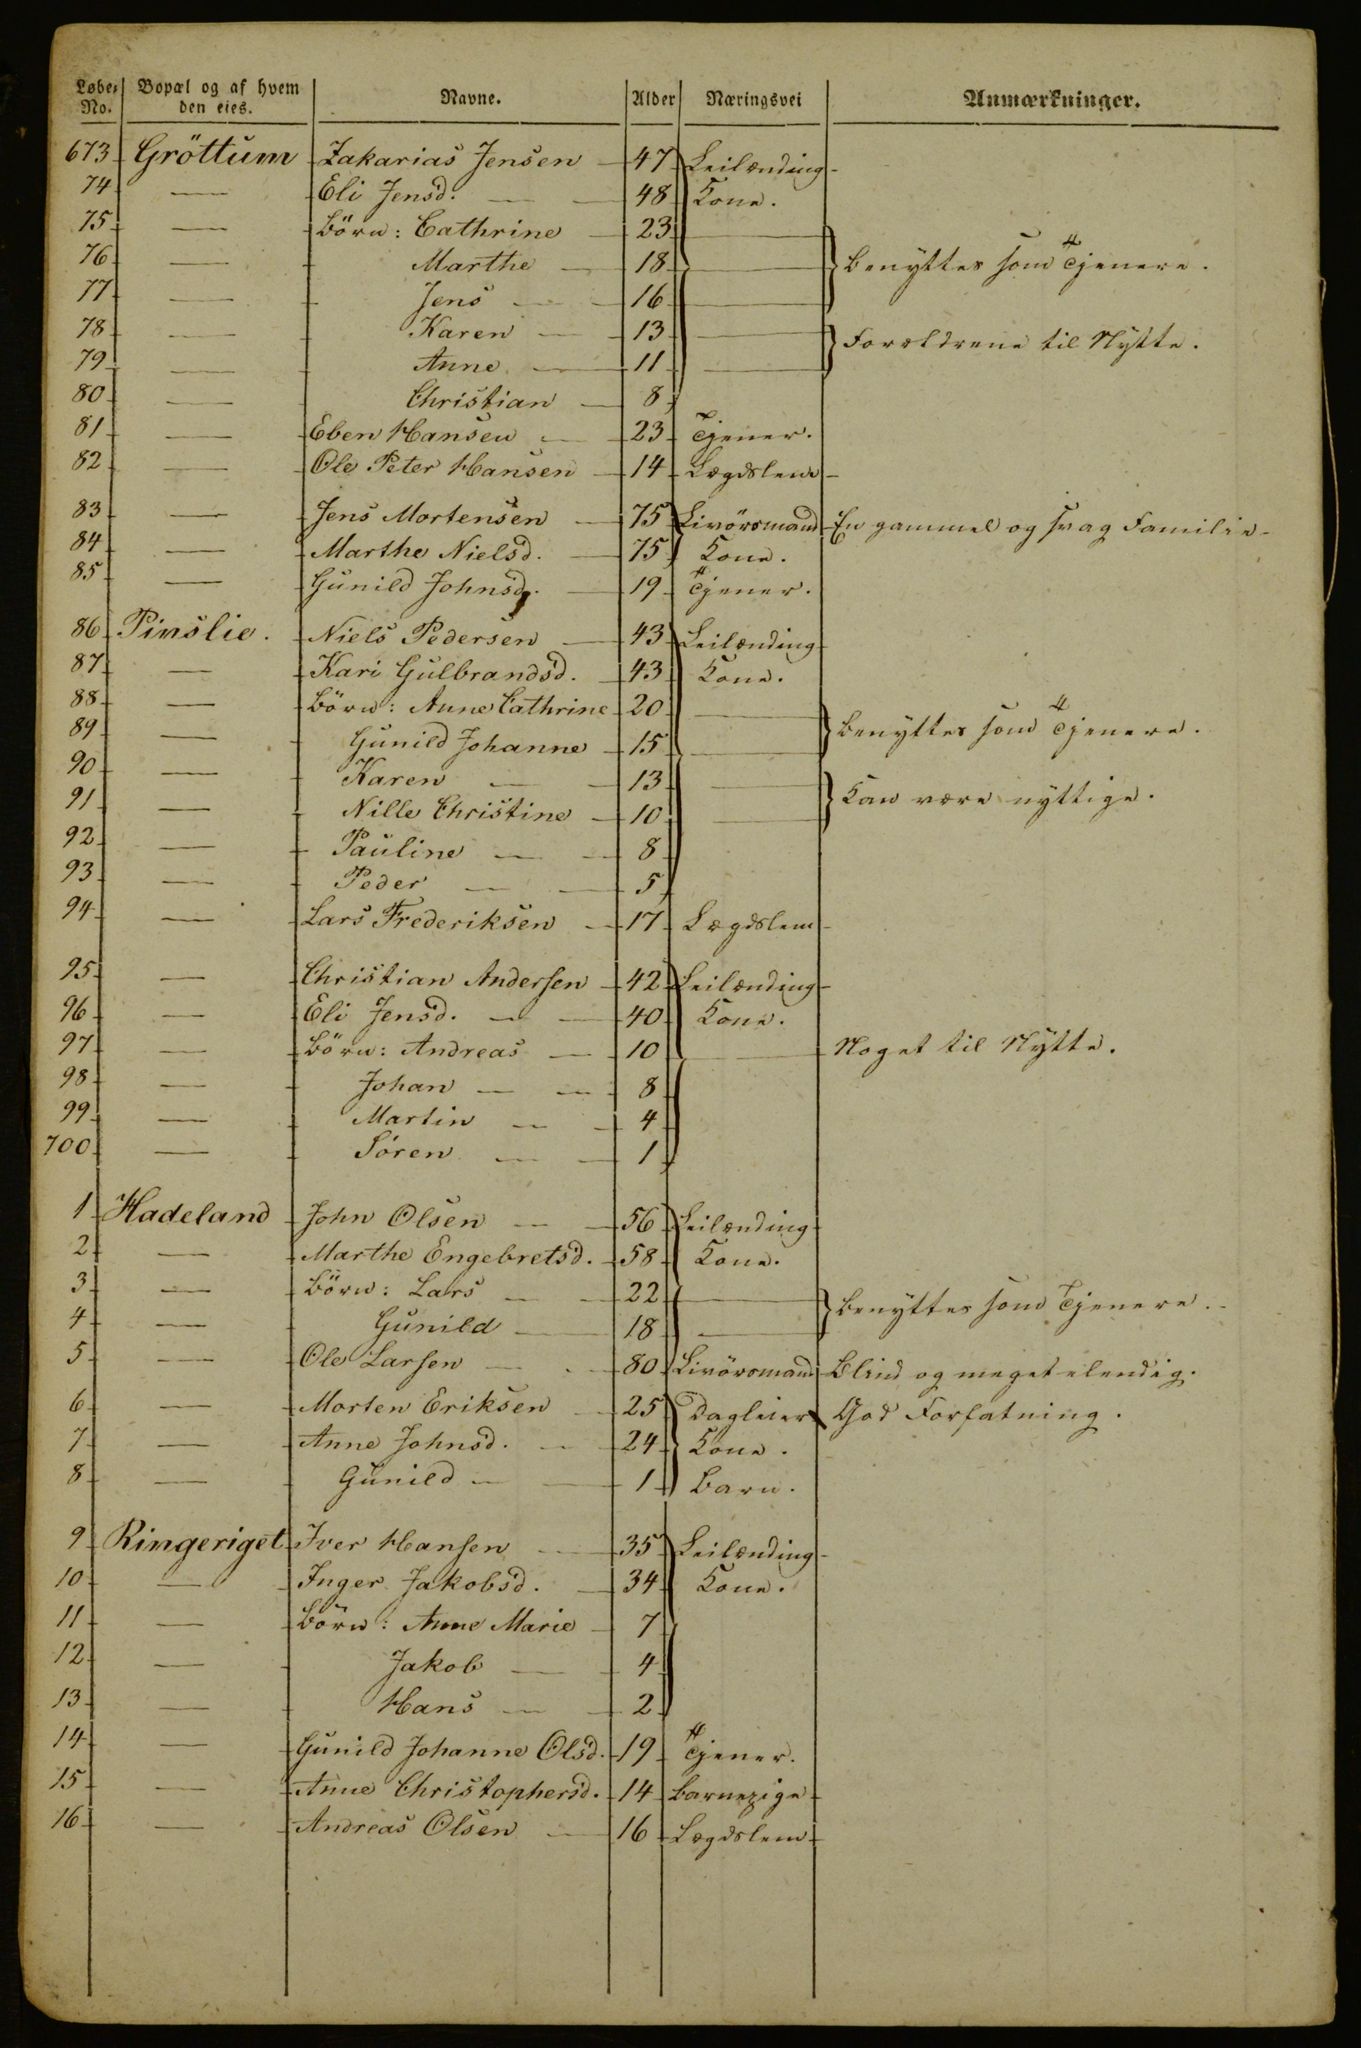 Løbe- No. | Bopæl og af hvem den eies. | Navne. | Alder | Næringsvei | Anmærkninger.
673 Gröttum Zakarias Jensen 47 Leilænding
74 — Eli Jensd. 48 Kone.
75 — Börn: Cathrine 23 —
76 — Marthe 18 — } Benyttes som Tjenere.
77 — Jens 16 —
78 — Karen 13 — } Forældrene til Nytte.
79 — Anne 11 —
80 — Christian 8
81 — Eben Hansen 23 Tjener.
82 — Ole Peter Hansen 14 Lægdslem
83 — Jens Mortensen 75 Livörsmand En gammel og svag Familie
84 — Marthe Nielsd. 75 Kone.
85 — Gunild Johnsd. 19 Tjener.
86 Pinslie. Niels Pedersen 43 Leilænding
87 — Kari Gulbrandsd. 43 Kone.
88 — Börn: Anne Cathrine 20 — } Benyttes som Tjenere.
89 — Gunild Johanne 15 —
90 — Karen 13 — } Kan være nyttige.
91 — Nille Christine 10 —
92 — Pauline 8
93 — Peder 5
94 — Lars Frederiksen 17 Lægdslem
95 — Christian Andersen 42 Leilænding
96 — Eli Jensd. 40 Kone.
97 — Börn: Andreas 10 — Noget til Nytte.
98 — Johan 8
99 — Martin 4
700 — Sören 1
1 Hadeland John Olsen 56 Leilænding
2 — Marthe Engebretsd. 58 Kone.
3 — Börn: Lars 22 — } Benyttes som Tjenere.
4 — Gunild 18 —
5 — Ole Larsen 80 Livörsmand Blind og meget elendig.
6 — Morten Eriksen 25 Dagleier God Forfatning.
7 — Anne Johnsd. 24 Kone.
8 — Gunild 1 Barn.
9 Ringeriget Iver Hansen 35 Leilænding
10 — Inger Jakobsd. 34 Kone.
11 — Börn: Anne Marie 7
12 — Jakob 4
13 — Hans 2
14 — Gunild Johanne Olsd. 19 Tjener.
15 — Anne Christophersd. 14 Barnepige
16 — Andreas Olsen 16 Lægdslem